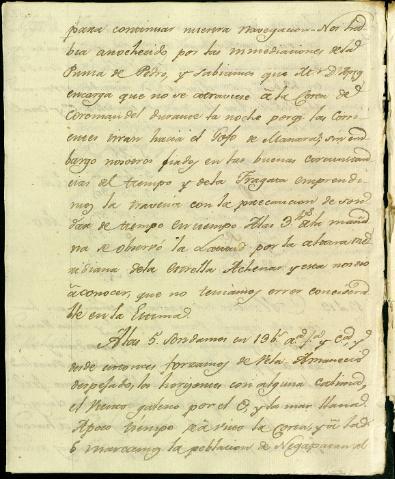 para continuar nuestra navegacion. Nos ha
bia anochecido por las inmediaciones dela
Punta de Pedro, y sabiamos que Mr D.
encarga que no se atraviese à la Costa de
Coromandel durante la noche porqe las Corri
entes tiran hacia el Golfo de Manara, sin em
bargo nosotros fiados en las buenas circunstan
cias el tiempo y dela Fragata emprendi
mos la travesia con la precaucion de son
dar de tiempo en tiempo. Alas 3 hs dela maña
na se observó la Latitud por la altura me
ridiana dela Estrella Achenar y esta nos hizo
à conocer, que no teniamos error considera
ble en la Estima.
Alas 5. Sondamos en 13 bs y
desde entonces forzamos de Vela. Amaneció
despejado, los horizontes con alguna calima,
el viento galeno por el O. y la mar llana.
Apoco tiempo se à visto la Costa, y à las
6 marcamos la poblacion de Negapatan al